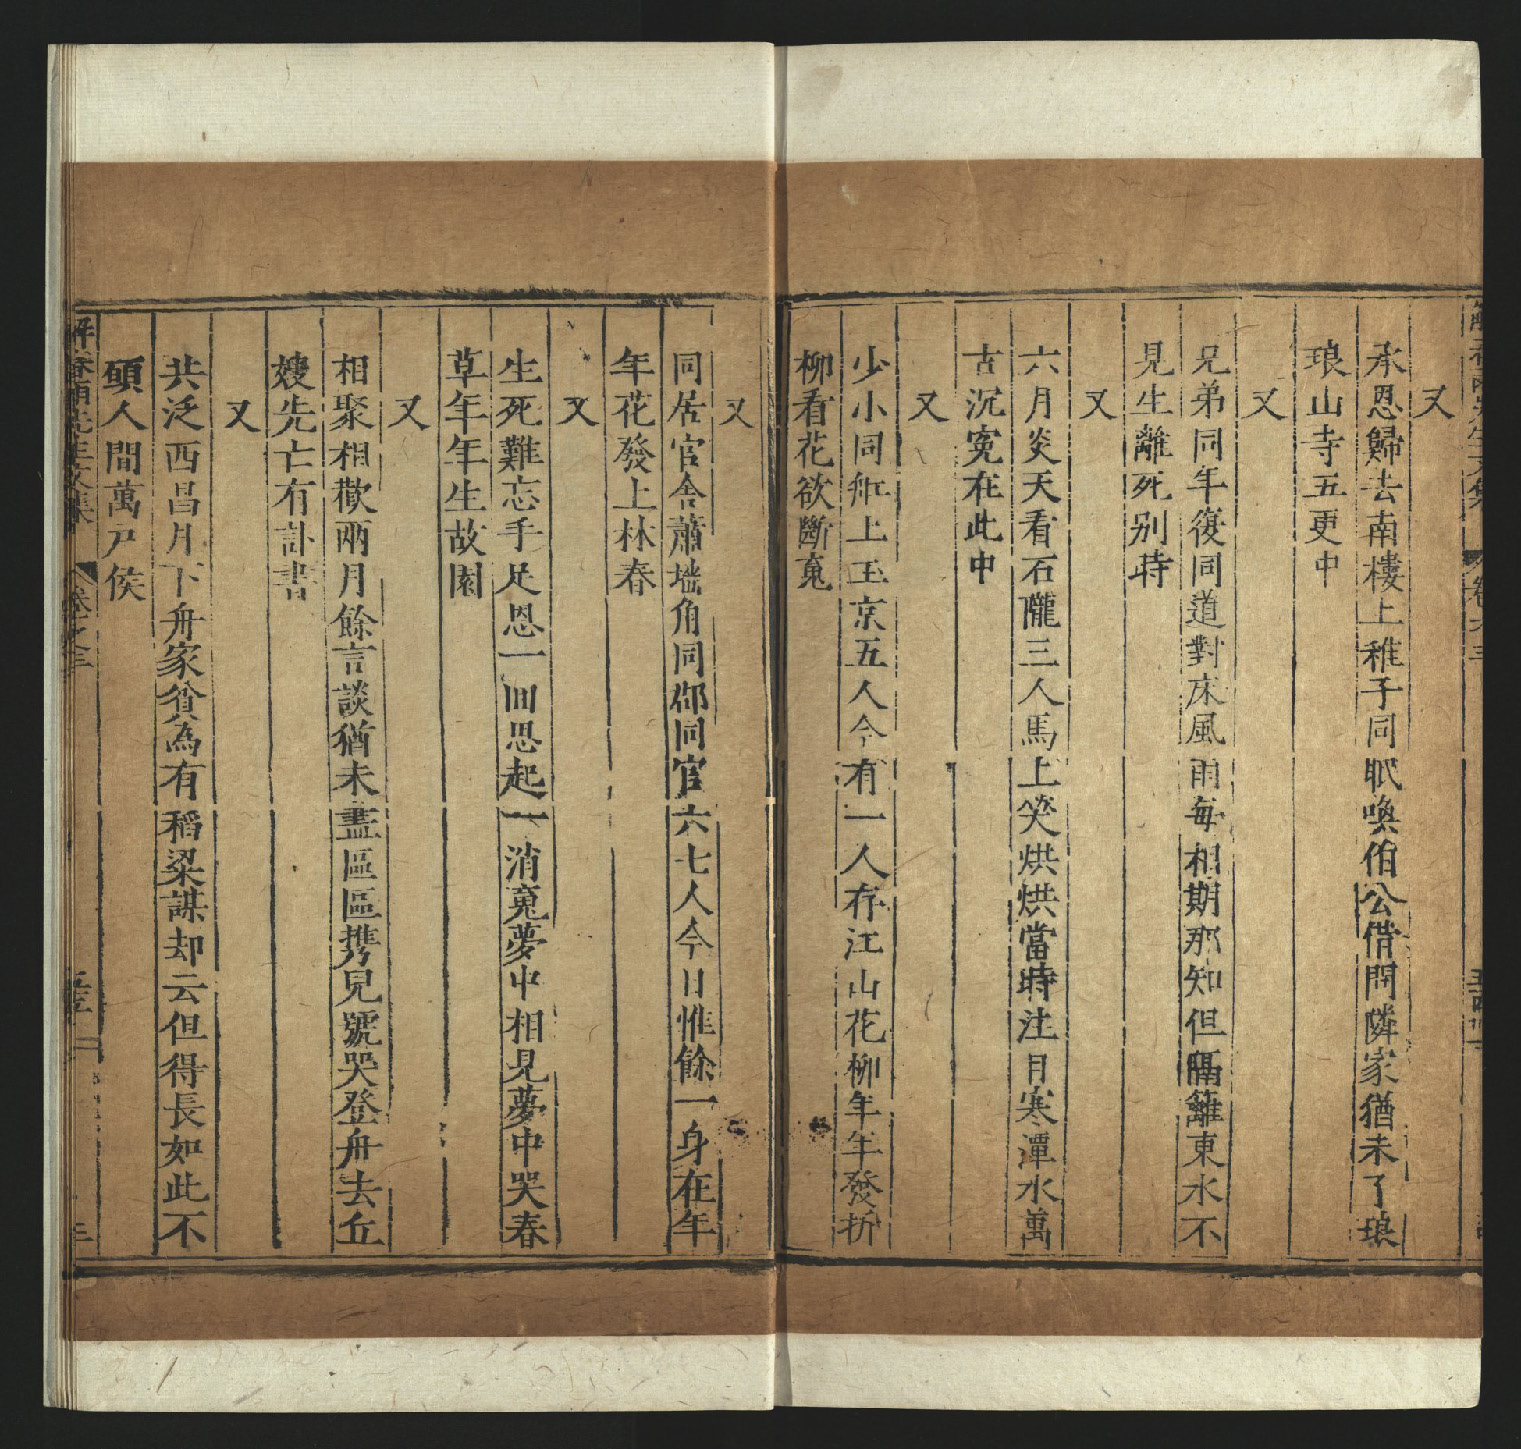 又
承恩歸去南樓上稚子同眠喚伯公借問隣家猶未了琅
琅山寺五更中
又
兄弟同年復同道對床風雨每相期那知但隔籬東水不
見生離死别時
又
六月炎天看石隴三人馬上笑烘烘當時注目寒潭水萬
古沉寃在此中
又
少小同舡上玉京五人今有一人存江山花柳年年發折
柳看花欲斷䰟
又
同居官舍蕭墻角同郷同官六七人今日惟餘一身在年
年花發上林春
又
生死難忘手足恩一回思起一消䰟夢中相見夢中哭春
草年年生故園
又
相聚相歡兩月餘言談猶未盡區區携兒號哭登舟去丘
嫂先亡有訃書
又
共泛西昌月下舟家貧為有稻粱謀却云但得長如此不
頭人間萬戸侯
解春雨先生文集
卷之三